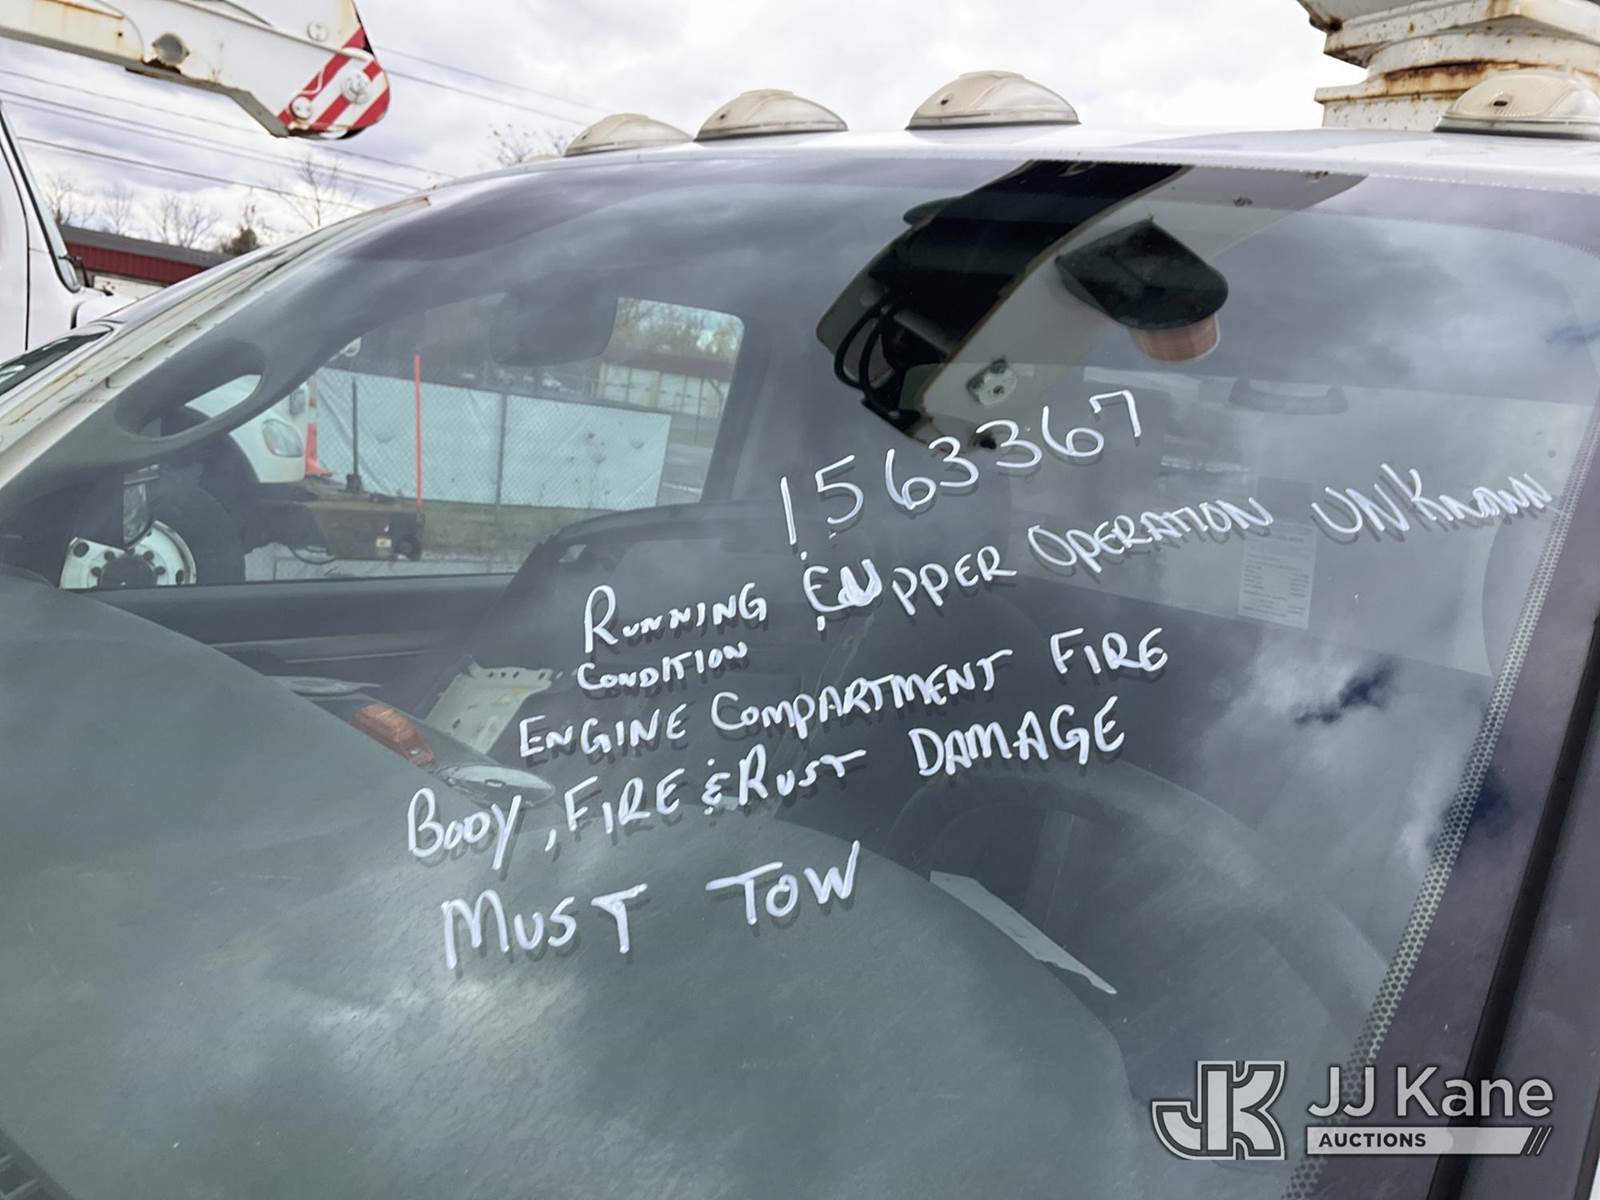 1563367
RUNNING & UPPER OPERATION UNKNOWN
CONDITION
ENGINE COMPARTMENT FIRE
BODY, FIRE & RUST DAMAGE
MUST TOW
JJ Kane
AUCTIONS